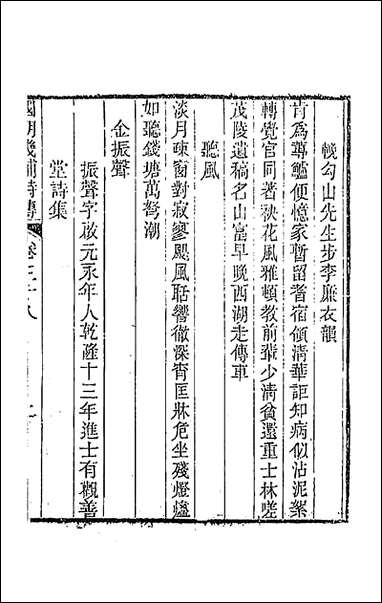 輓勾山先生步李廉衣韻
肯為蓴鱸便憶家暫留耆宿領清華詎知病似沾泥絮
轉覺官同著袂花風雅頓教前輩少清貧還重士林嗟
茂陵遺稿名山富早晚西湖走傳車
聽風
淡月疎窗對寂寥颶風聒響徹深宵匡牀危坐殘燈燼
如聽錢塘萬弩潮
金振聲
振聲字啟元永年人乾隆十三年進士有觀善
堂詩集
國朝畿輔詩傳 卷三十八